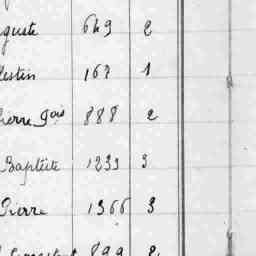 guste 649 2
lestin 167 1
ierre gois 888 2
Baptiste 1233 3
Pierre 1366 3
899 2